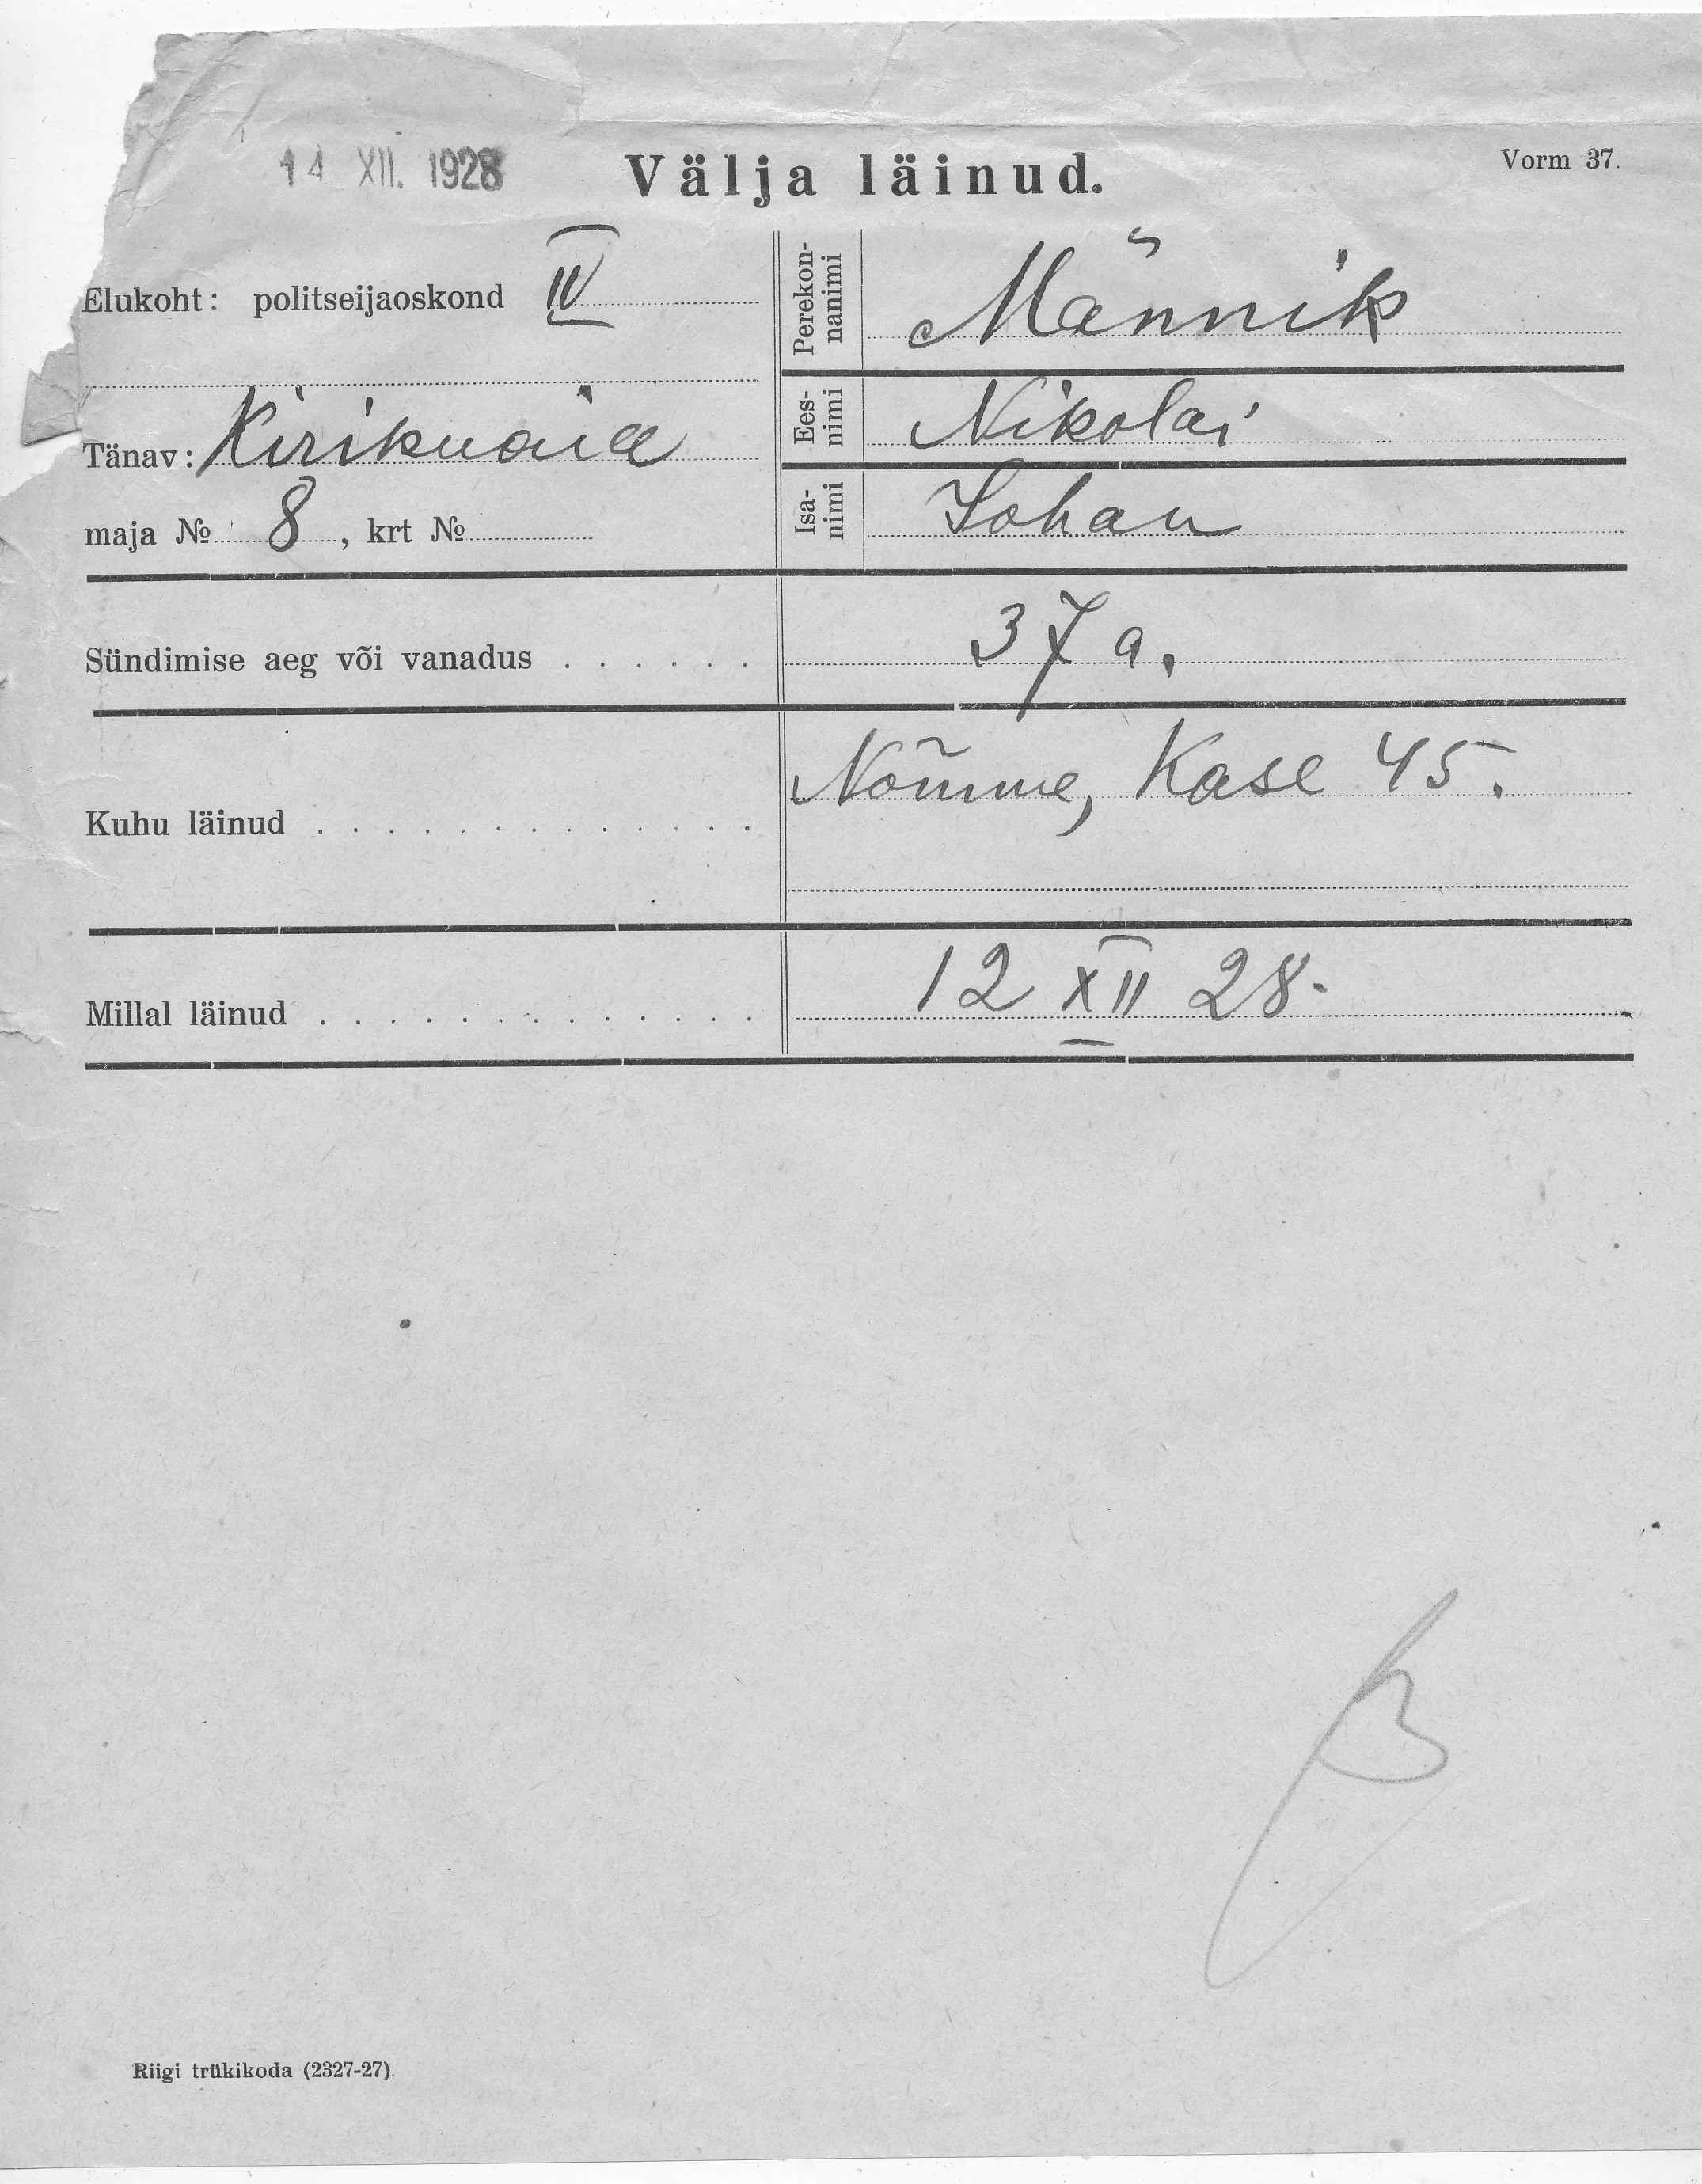 14 XII. 1928
Välja läinud.
Vorm 37.
Elukoht: politseijaoskond IV
Tänav: Kirikuaia
maja № 8, krt №
Perekon-
nanimi
Männik
Ees-
nimi
Nikolai
Isa-
nimi
Johan
Sündimise aeg või vanadus . . . . . . 37 a.
Kuhu läinud . . . . . . . . . . . . . Nõmme, Kase 45.
Millal läinud . . . . . . . . . . . . . 12 XII 28.
Riigi trükikoda (2327-27).